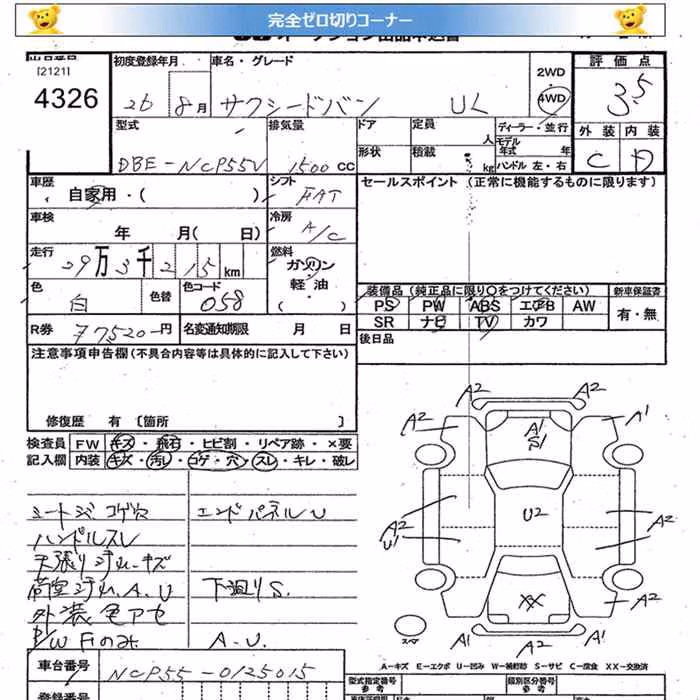 完全ゼロ切りコーナー
[2121]
4326
初度登録年月
26 8月
車名・グレード
サクシードバン UL
2WD
・
4WD
評価点
3.5
外装 内装
C D
型式
DBE-NCP55V
排気量
1500 CC
ドア
定員
人
ディーラー・並行
モデル年式 年
形状
積載
kg
ハンドル 左・右
車歴
自家用・( )
シフト
FAT
セールスポイント (正常に機能するものに限ります)
車検
年 月( 日)
冷房
A/C
走行
29万3千215km
燃料
ガソリン
軽油
( )
色
白
色替
色コード
058
装備品 (純正品に限り○をつけてください)
新車保証書
PS PW ABS エアB AW
SR ナビ TV カワ
有・無
R券 77520-円
名変通知期限 月 日
後日品
注意事項申告欄(不具合内容等は具体的に記入して下さい)
修復歴 有 [箇所 ]
検査員 FW キズ・飛石・ヒビ割・リペア跡・×要
記入欄 内装 キズ・汚レ・コゲ・穴・スレ・キレ・破レ
シートシミ コゲ穴 エンドパネルU
ハンドルスレ
天張りシミ キズ
荷室シミ. A. U 下廻りS.
外装色アセ
P/W Fのみ A-U.
A2 A2
A2 A1
A1
S1
A2
U1
U2
A2
XX
A2 A2
A1 A1
スペア
A-キズ E-エクボ U-凹み W-補修跡 S-サビ C-腐食 XX-交換済
車台番号
NCP55-0125015
型式指定番号
参考
類別区分番号
参考
登録番号